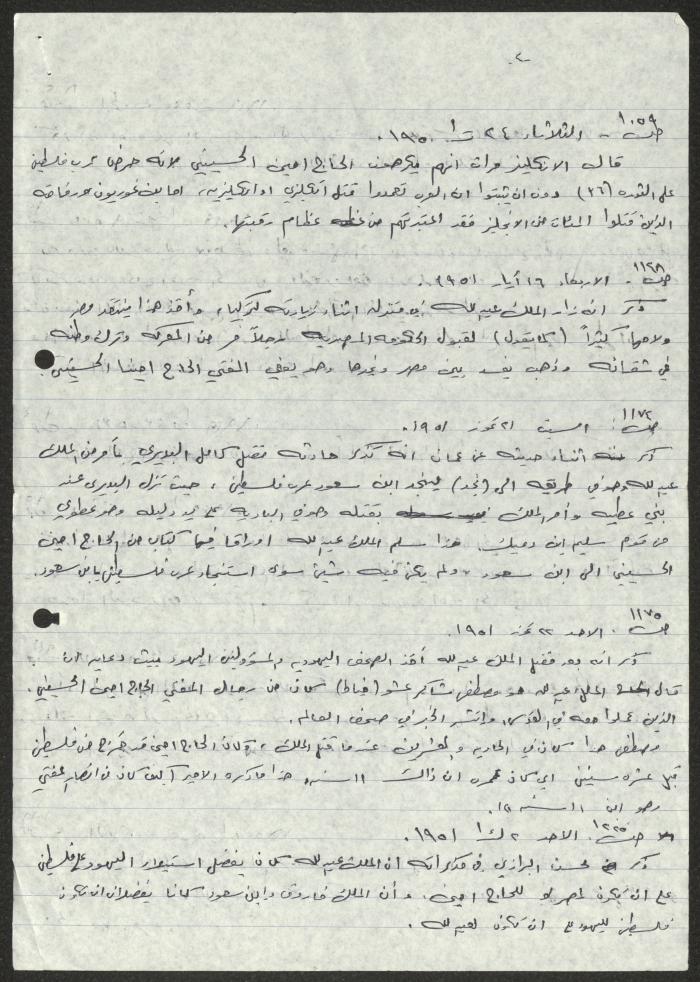 -٢-
ص ١٠٥٩ - الثلاثاء ٢٤ ت١ ١٩٥٠.
قال الانكليز مرات انهم يكرهون الحاج امين الحسيني لانه حرض عرب فلسطين
على الثورة (٣٦) دون ان يثبتوا ان العرب تعمدوا قتل انكليزي او انكليزية، اما بن غوريون ورفاقه
الذين قتلوا المئات من الانجليز فقد اعتبرتهم من عظام رقبتها.
ص ١١٢٨ - الاربعاء ١٦ أيار ١٩٥١.
ذكر انه زار الملك عبدالله في منزله اثناء زيارته لتركيا، وأخذ هذا ينتقد مصر
ولامها كثيراً (كما يقول) لقبول الحكومة المصرية رجلاً فر من المعركة وترك وطنه
في شقائه وذهب يفسد بين مصر وغيرها وهو يعني المفتي الحاج امين الحسيني
ص ١١٧٢ السبت ٢١ تموز ١٩٥١.
ذكر اثناء حديثه عن عمان انه تذكر حادثة فضل كامل البديري بأمر من الملك
عبدالله وهو في طريقه الى (نجد) ليستنجد ابن سعود عرب فلسطين، حيث نزل البديري عند
بني عطية وأمر الملك بقتله وهو في البادية على يد دليله وهو عطوي
من قوم سليم ابن دميك. هذا سلم الملك عبدالله اوراقا فيها كتاب من الحاج امين
الحسيني الى ابن سعود، ولم يكن فيه شيئ سوى استنجاد عرب فلسطين بابن سعود.
ص ١١٧٥ - الاحد ٢٢ تموز ١٩٥١.
ذكر انه بعد قتل الملك عبدالله أخذ الصحف اليهودية والمسؤولين اليهود ببث دعاية ان
قاتل الملك عبدالله هو مصطفى شاكر عشو (خياط) كان من رجال المفتي الحاج امين الحسيني.
الذين عملوا معه في القدس وانتشر الخبر في صحف العالم.
مصطفى هذا كان في الحادية والعشرين عندما قتل الملك، وكان الحاج امين قد خرج من فلسطين
قبل عشرة سنين اي كان عمره ان ذاك ١١ سنه، هذا ما ذكره الامير كان من انصار المفتي
وهو ابن ١١ سنه ؟!.
ص ١٢٢٥ الاحد ٢ ك١ ١٩٥١.
ذكر محسن البرازي في مذكراته ان الملك عبدالله كان يفضل استيلاء اليهود على فلسطين
على ان تكون لمصر او للحاج امين، وأن الملك فاروق وابن سعود كانا يفضلان ان تكون
فلسطين لليهود على ان تكون لعبدالله.